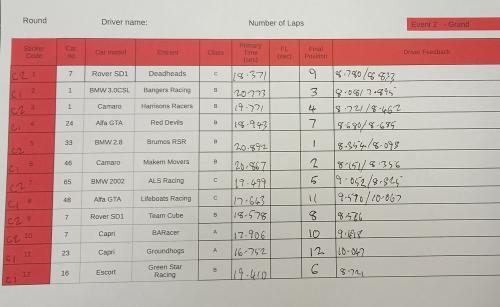 Round Driver name: Number of Laps Event 2 - Grand
Sticker Code Car no Car model Entrant Class Primary Time (sec) FL (sec) Final Position Driver Feedback
C2 1 7 Rover SD1 Deadheads C 18.371 9 8.780/8.833
C1 2 1 BMW 3.0CSL Bangers Racing B 20.773 3 8.081/7.895
C2 3 1 Camaro Harrisons Racers B 19.771 4 8.721/8.462
C1 4 24 Alfa GTA Red Devils B 18.943 7 8.680/8.685
C2 5 33 BMW 2.8 Brumos RSR B 20.892 1 8.354/8.098
C1 6 46 Camaro Makem Movers B 20.867 2 8.151/8.356
C2 7 65 BMW 2002 ALS Racing C 19.499 5 9.052/8.325
C1 8 48 Alfa GTA Lifeboats Racing C 17.663 11 9.590/10.067
C2 9 7 Rover SD1 Team Cube B 18.578 8 8.566
C2 10 7 Capri BARacer A 17.906 10
C1 11 23 Capri Groundhogs A 16.752 12 10.047
C1 12 16 Escort Green Star Racing B 19.410 6 8.721